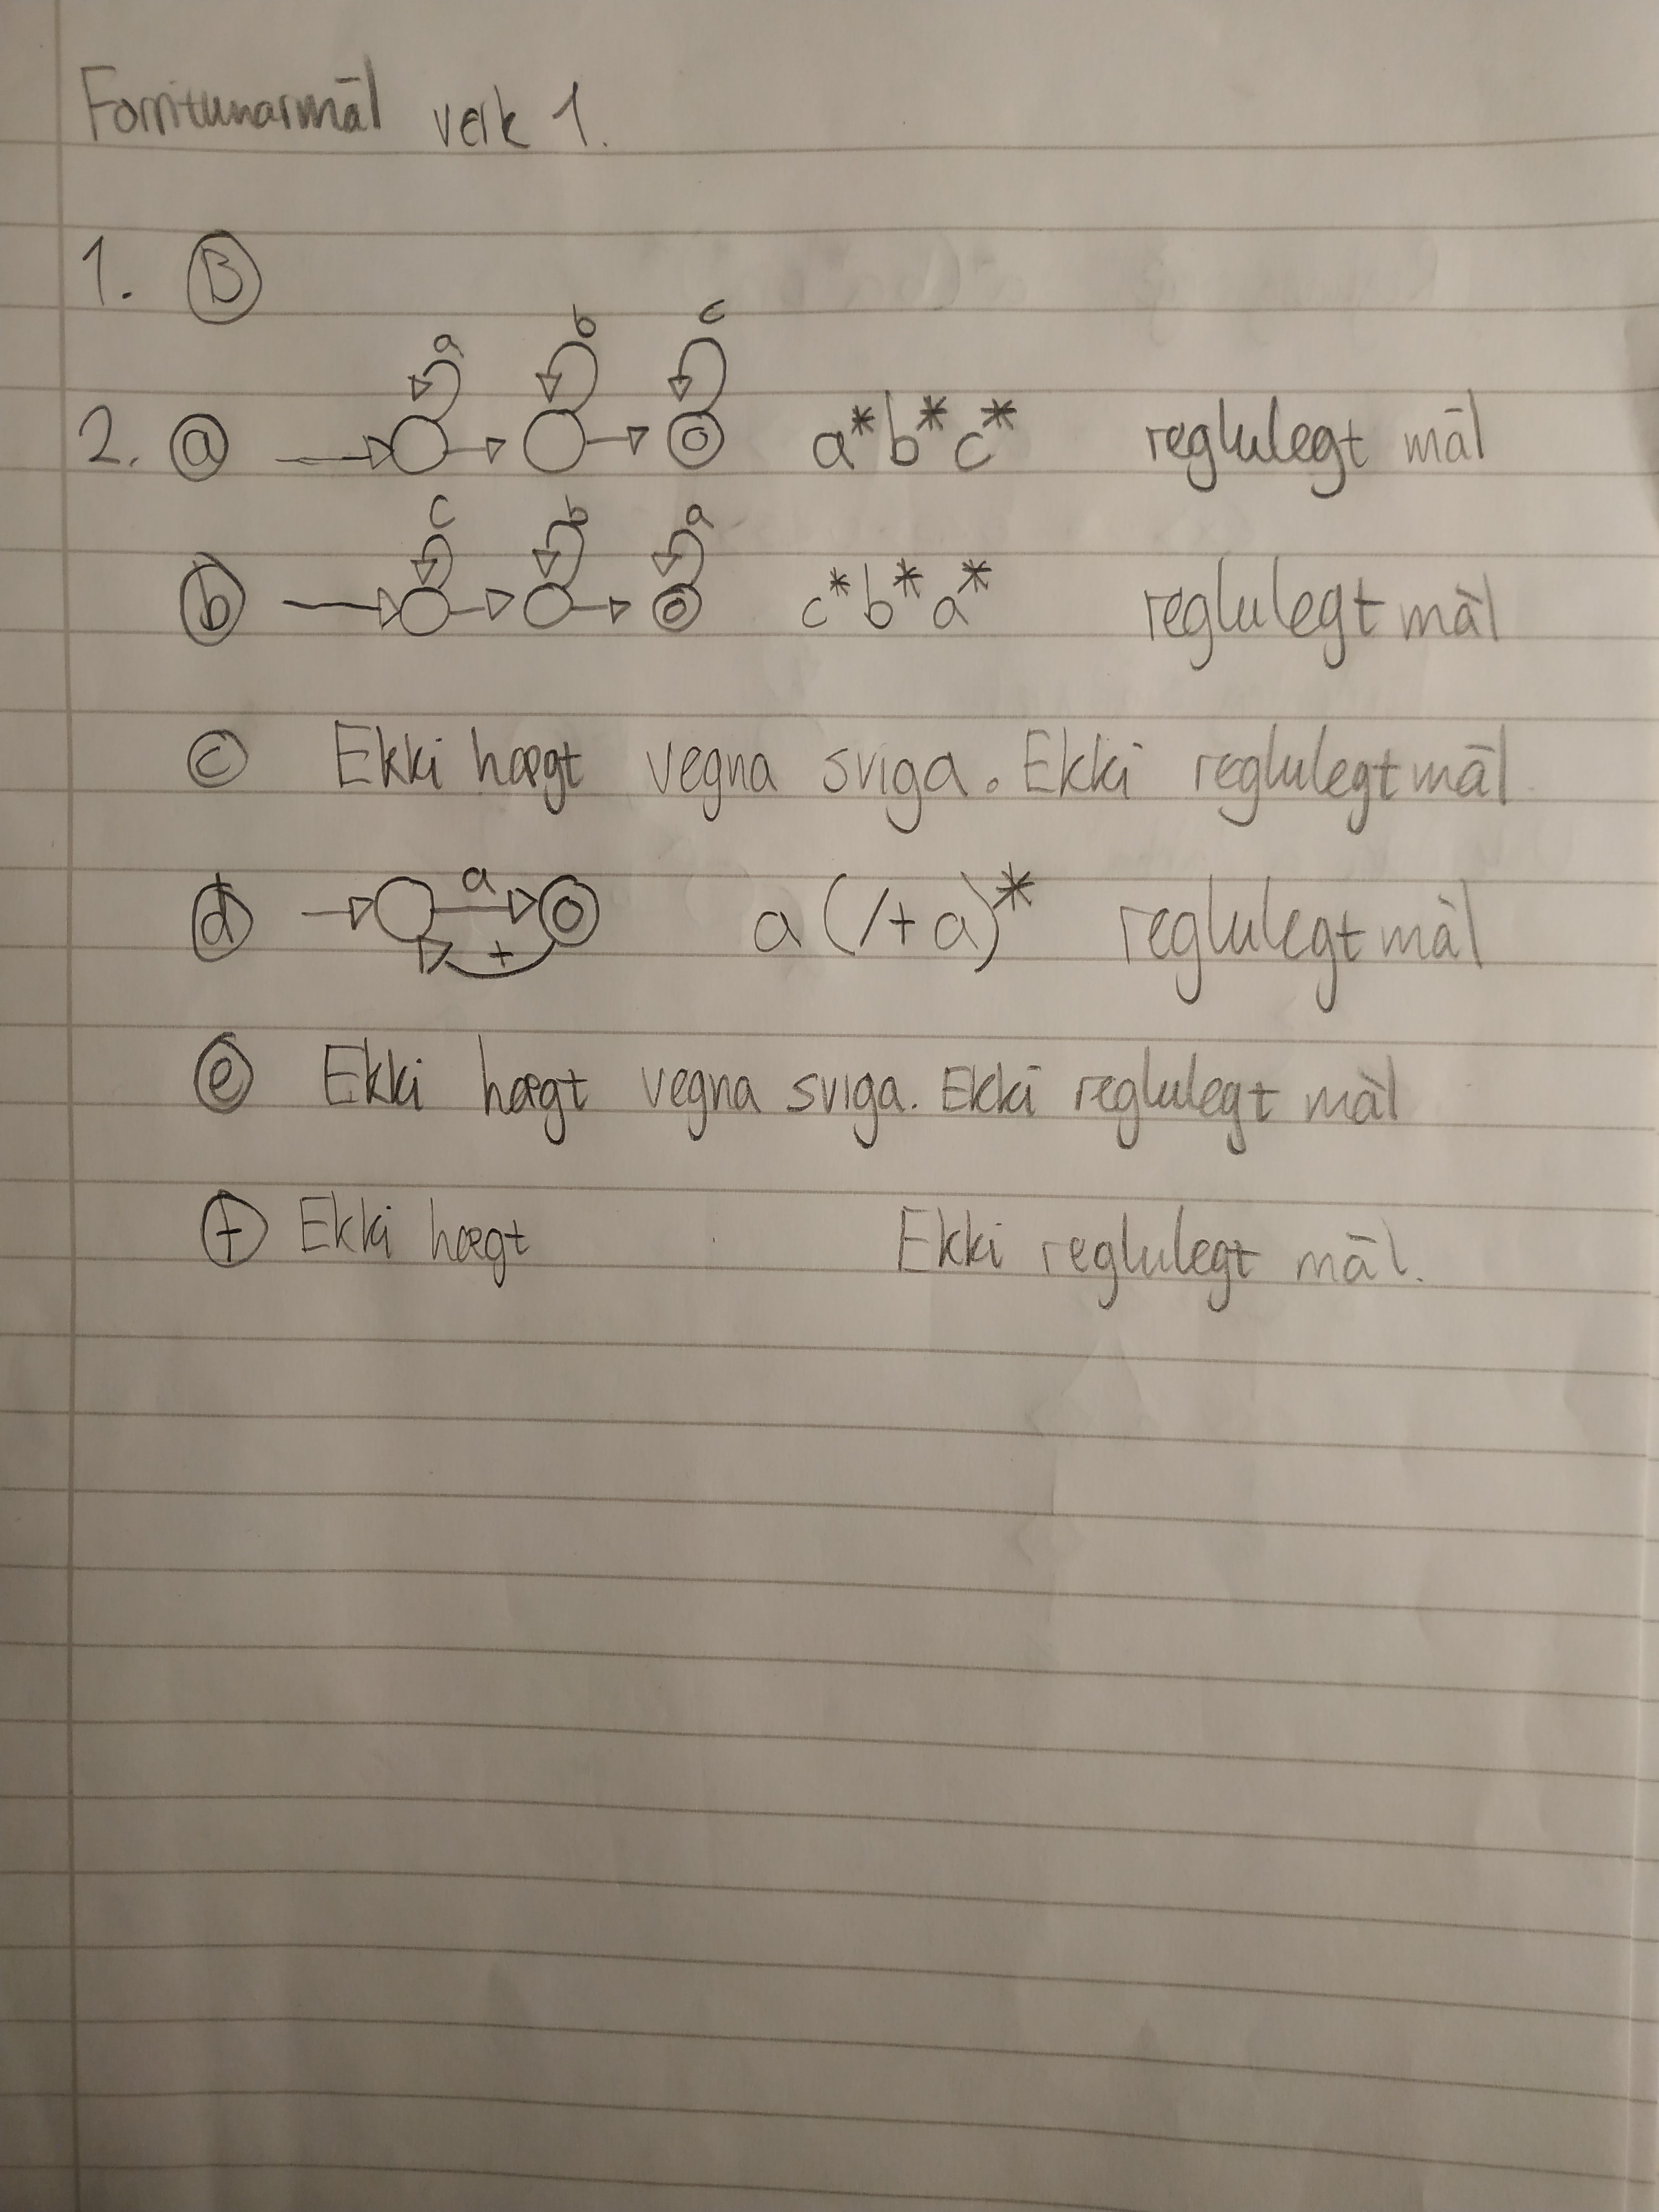 Forritunarmál verk 1.
1. B
a b c
2. a a*b*c* reglulegt mál
c b a
b c*b*a* reglulegt mál
c Ekki hægt vegna sviga. Ekki reglulegt mál
a
d a(/+a)* reglulegt mál
+
e Ekki hægt vegna sviga. Ekki reglulegt mál
f Ekki hægt Ekki reglulegt mál.